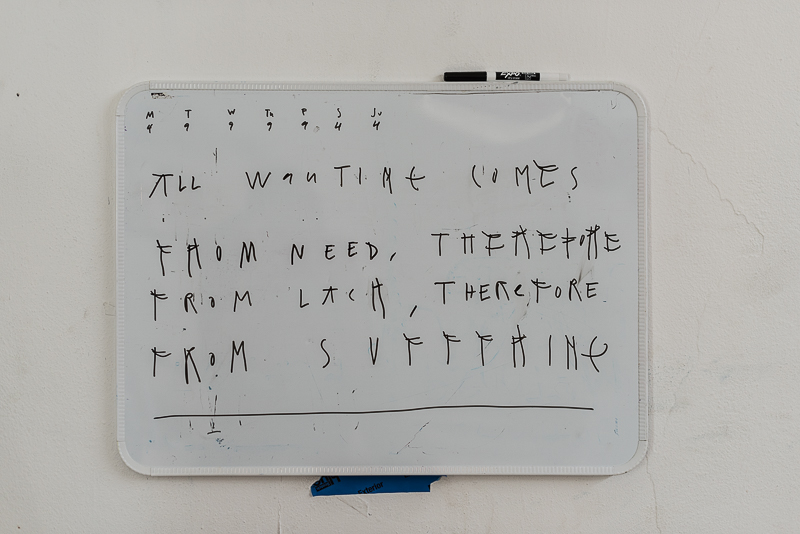 M T W Th F S Su
4 9 9 9 9 4 4
ALL WANTING COMES
FROM NEED, THEREFORE
FROM LACK, THEREFORE
FROM SUFFERING
Exterior